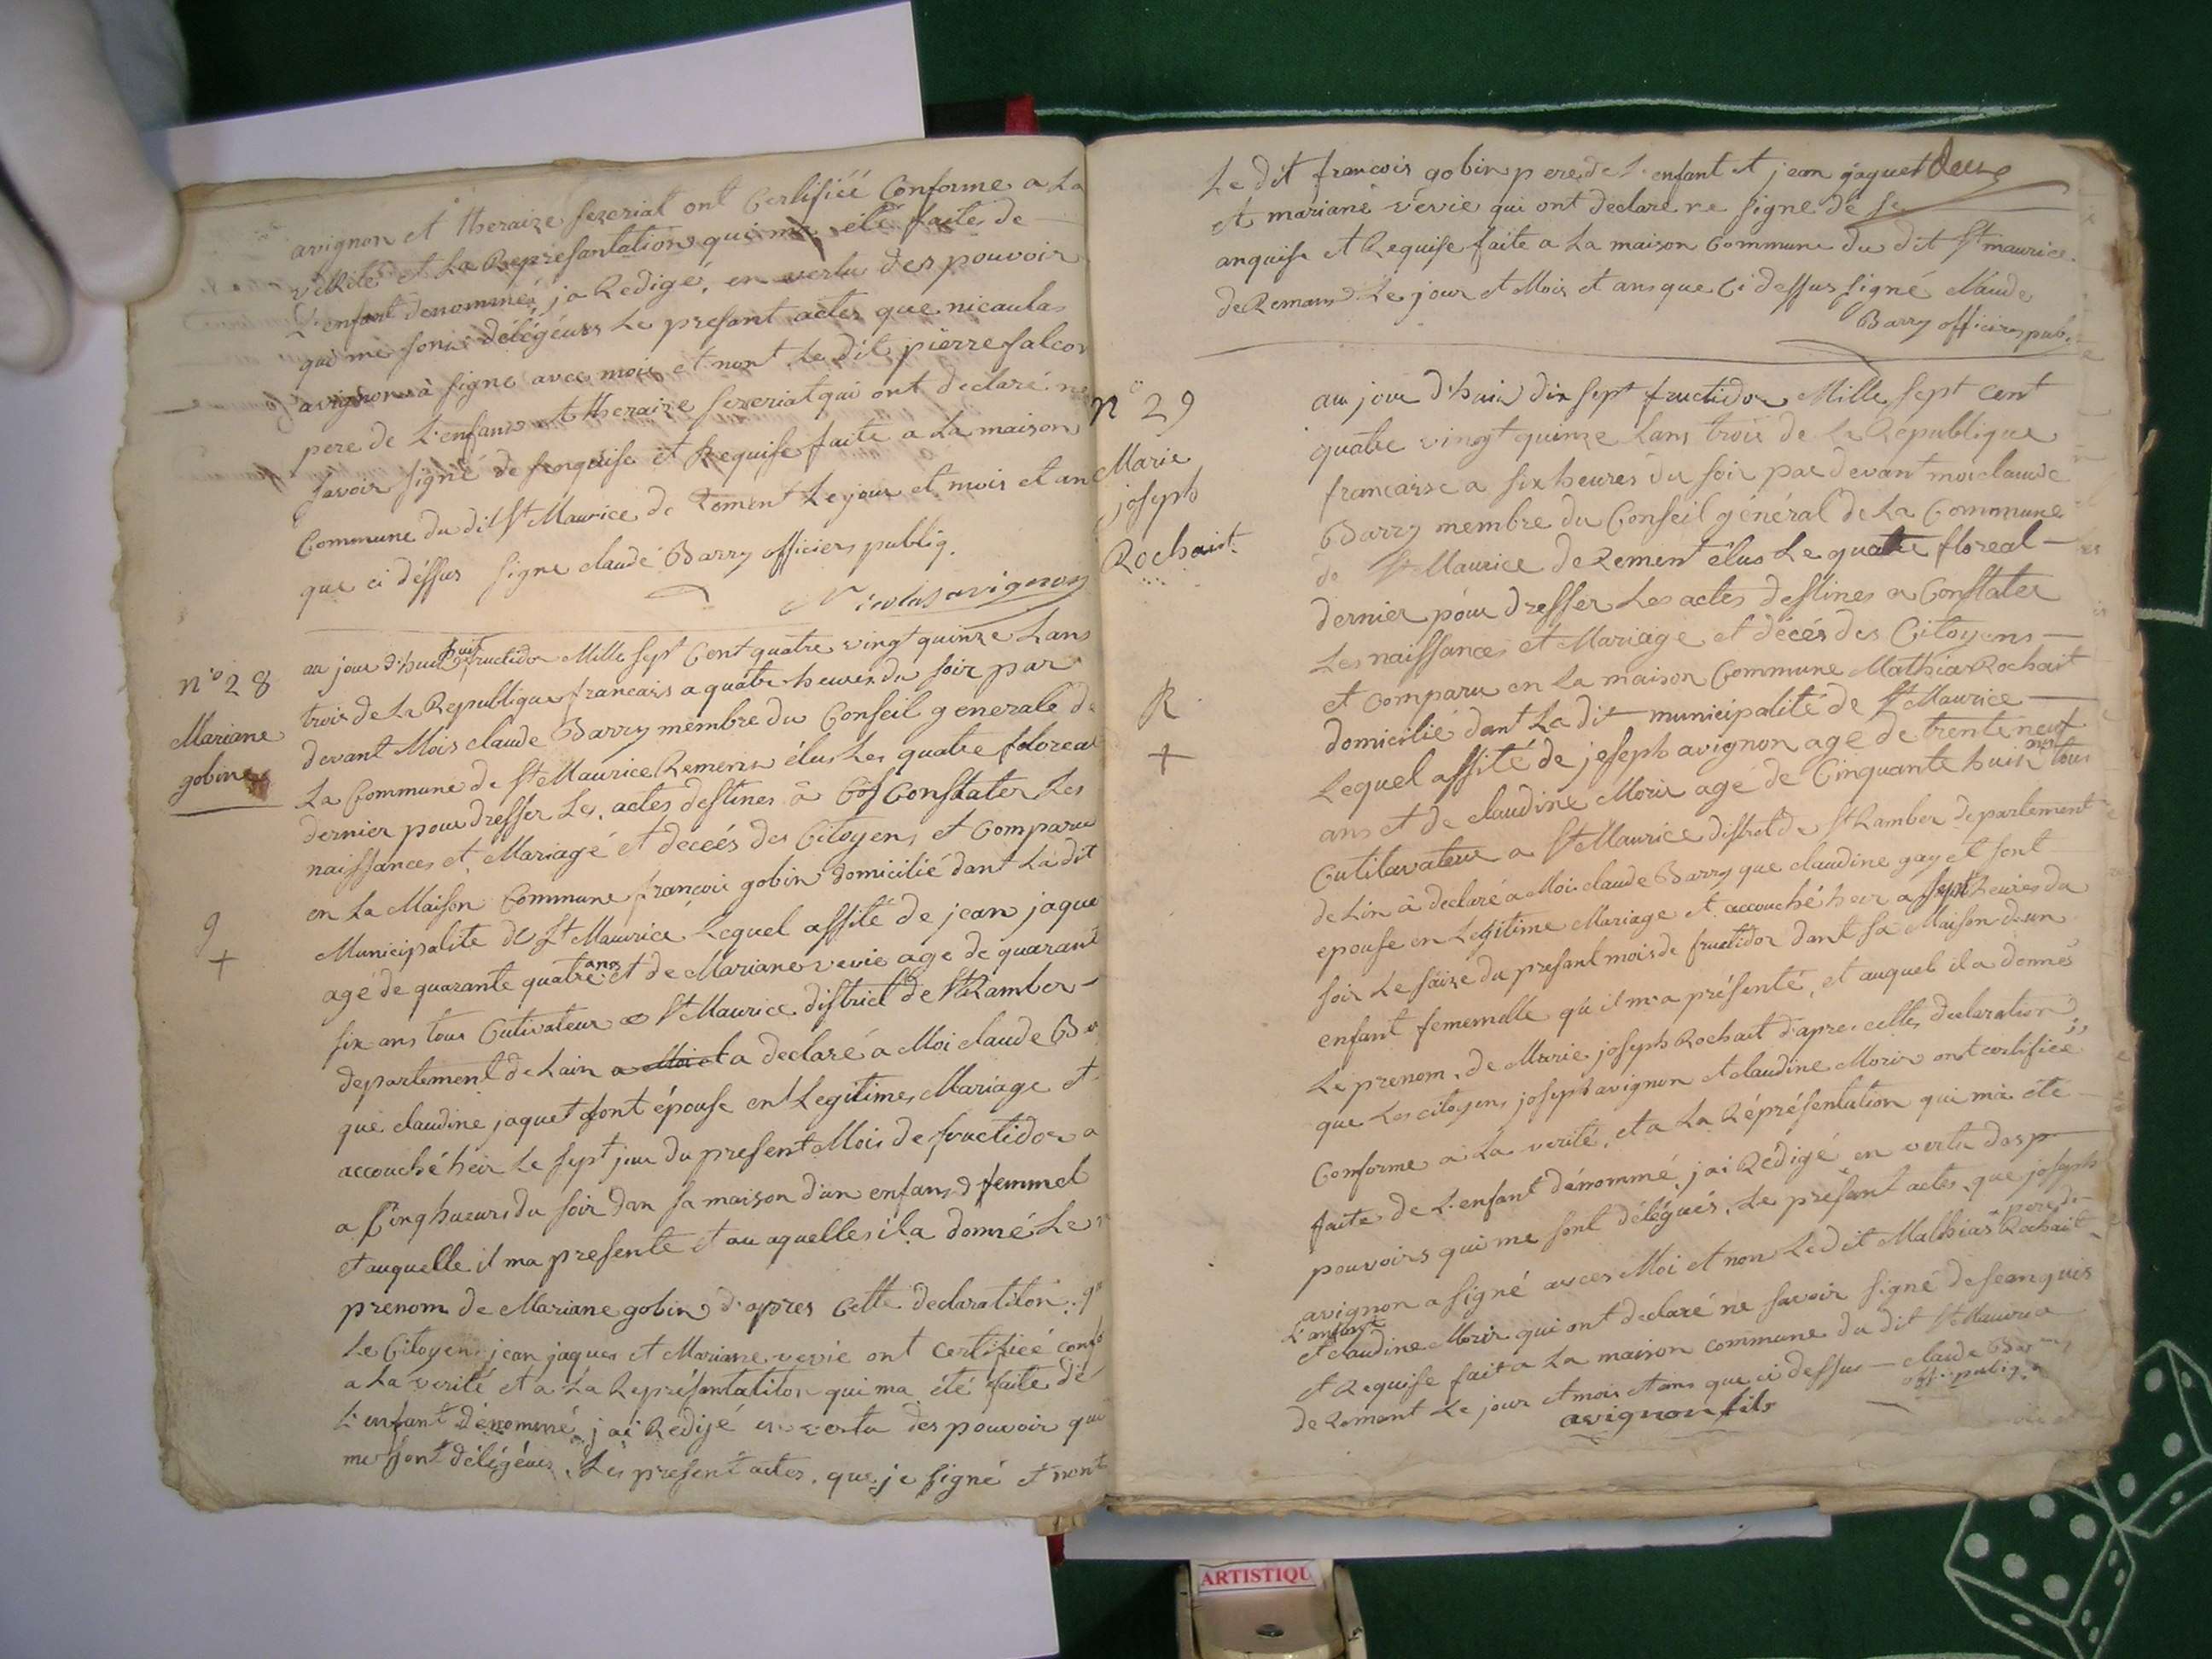 avignon et theraize sezeriat ont Certifiéé Conforme a La
verité et La Represantation qui ma été faite de
L'enfant denommé, ja Redigé, en vertu des pouvoir
qui me sont délégéuers Le presant actes que nicaulas
avignon à signe avec mois et nont Le dit pierre falcon
pere de L'enfant et theraize sezeriat qui ont declaré ne
savoir signé de senquise et Requise faite a La maison
Commune du dit St Maurice de Rement Le jour et mois et an
que ci déssus signe claude Barry officiers publiq.
Nicolas avignon
n° 28
Mariane
gobin
g
+
au jour d'hui huit fructidor Mille sept Cent quatre vingt quinze Lans
trois de La Republique francais a quatre heures du soir par
devant Mois claude Barry membre du Conseil generale de
La Commune de St Maurice Remens élus Les quatre floreal
dernier pour dresser Les actes destines à Constater Les
naissances et Mariagé et decéés des Citoyens et Comparu
en La Maison Commune francois gobin domicilié dant La dit
Municipalite de St Maurice Lequel assité de jean jaque
agé de quarante quatre ans et de Mariane vevie age de quarant
six ans tous Cutivateur a St Maurice district de St Ramber
departement de Lain a Moi et a declaré a Moi claude Bar
que claudine jaquet sont épouse ent Legitimes Mariage et
accouché héir Le sept jour du present Mois de fructidor a
a Cinq hueurs du soir dan sa maison d'un enfans d femmel
et auquelle il ma presente et au aquelles il a donné Le
prenom de Mariane gobin d'apres Cette declaratiton que
Le Citoyen jean jaques et Mariane vevie ont certifieé confo
a La verité et a La Représentatiton qui ma été faite dé
L'enfant dénommé, j ai Redijé en vertu des pouvoir qui
me sont délégéuer Les present actes. que je signé et nont
Le dit francois gobin pere de L'enfant et jean jaquet
et mariane vevie qui ont declare ne signé de se
anquise et Requise faite a La maison Commune du dit St maurice
de Remans Le jour et Mois et ans que Ci dessus signé claude
Barry officiers pub.
n° 29
Marie
joseph
Rochait
R
+
au jour d'huit dix sept fructidor Mille sept cent
quatre vingt quinze Lans trois de La Republique
francaise a six heures du soir par devant moi claude
Barry membre du Conseil général de La Commune
de St Maurice de Rement élus Le quatre floreal
dernier pour dresser Les actes destines a Constater
Les naissances et Mariage et décés des Citoyens
et Comparu en La maison Commune Mathias Rochait
domicilié dant La dit municipalité de St Maurice
Lequel assité de joseph avignon age de trente neuf
ans et de claudine Morir agé de Cinquante huit ans tous
Cutilavateur a St Maurice distret de St Ramber departement
de Lin à declaré a Moi claude Barry que claudine gayet sont
epouse en Legitime Mariage et accouché heir a sept heures du
soir Le saize du presant mois de fructidor dant sa Maison d'un
enfant fememelle qu'il m'a présenté, et auquel il a donnés
Le prenom, de Marie joseph Rochait d'apres celles declaration
que Les citoyens joseph avignon et claudine Morir ont certifieé
Conforme a La verité, et a La Répréséntation qui ma été
faite de L'enfant dénommé, j ai Rédigé en vertu des p
pouvoirs qui me sont délégués. Le présent actes, que joseph
avignon a signé avces Moi et non Le dit Mathias Rochait pere de
L'enfant
et claudine Morir qui ont declaré ne savoir signé de seanquis
et Requise fait a La maison commune du dit St Maurice
de Remant Le jour et mois et ans que ci dessus — claude Bar
off. publiq.
avignon fils
ARTISTIQU